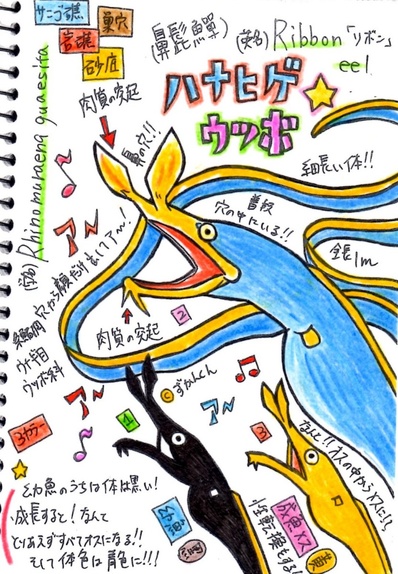 サンゴ礁
巣穴
岩礁
砂底
(鼻髭鱓)
(英名) Ribbon「リボン」
eel
ハナヒゲ
ウツボ
(学名) Rhinomuraena quaesita
肉質の突起
鼻の穴!!
細長い体!!
普段
穴の中にいる!!
全長1m
ア〜
穴から顔だけ出してア〜〜!
ウナギ目
ウツボ科
肉質の突起
2
ア〜
ア〜
©ずかんくん
3カラー
1
3
なんと!!オスの中からメスに!!
幼魚のうちは体は黒い!
成長すると!なんて
とりあえずすべてオスになる!!
そして体色は青色に!!!
幼魚
成魚メス
黄
性転換もする!